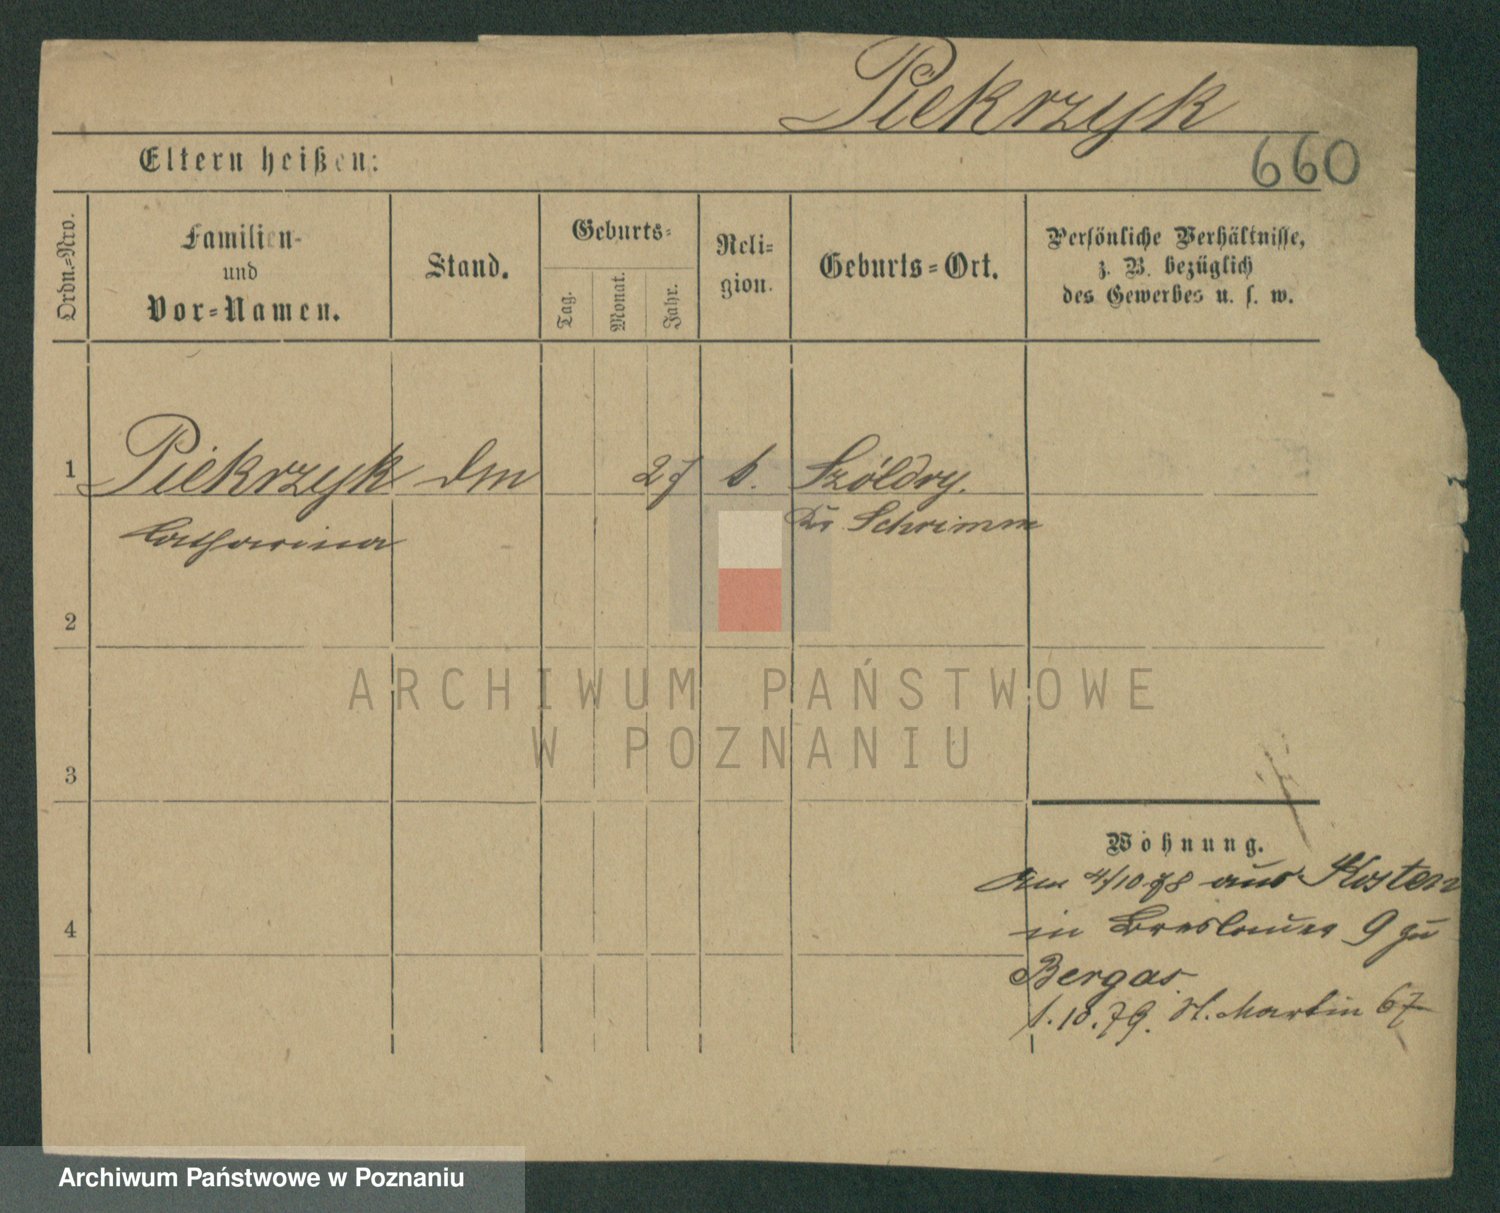 Piekrzyk
660
Eltern heißen:
Ordn.-Nro.
Familien-
und
Vor-Namen.
Stand.
Geburts-
Tag.
Monat.
Jahr.
Reli-
gion.
Geburts-Ort.
Persönliche Verhältnisse,
z. B. bezüglich
des Gewerbes u. s. w.
1 Piekrzyk 27 k. Szóldry.
Catharina
Kr Schrimm
2
ARCHIWUM PAŃSTWOWE
W POZNANIU
3
Wohnung.
Am 4/10 78 aus Kosten
4
in Breslauer 9 zu
Bergas.
1.10.79. St. Martin 67
Archiwum Państwowe w Poznaniu